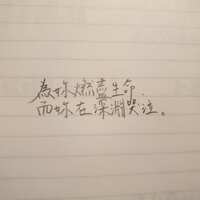 為妳燃盡生命
而妳在深淵哭泣。